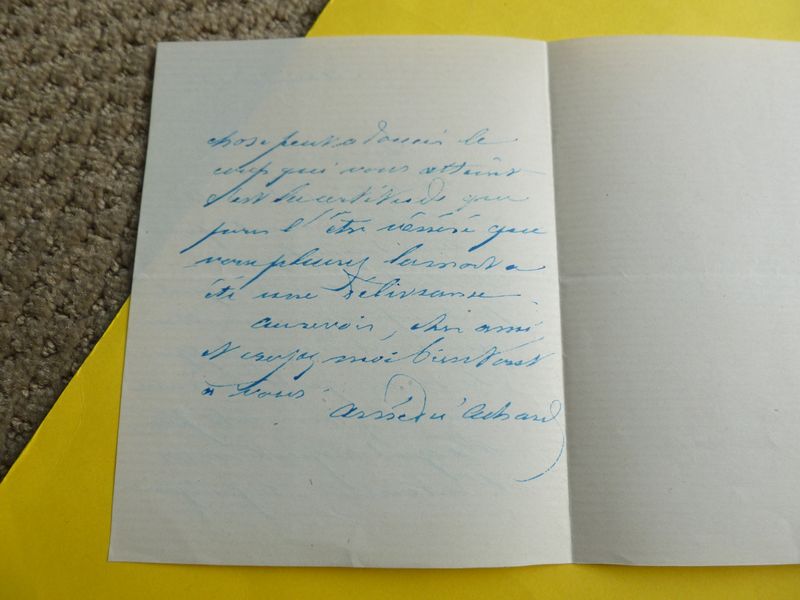 chose peut adoucir le
coup qui vous atteint
c'est la certitude que
pour l'être vénéré que
vous pleurez la mort a
été une délivrance
au revoir, cher ami,
et croyez moi bien tout
à vous
Amédée Achard